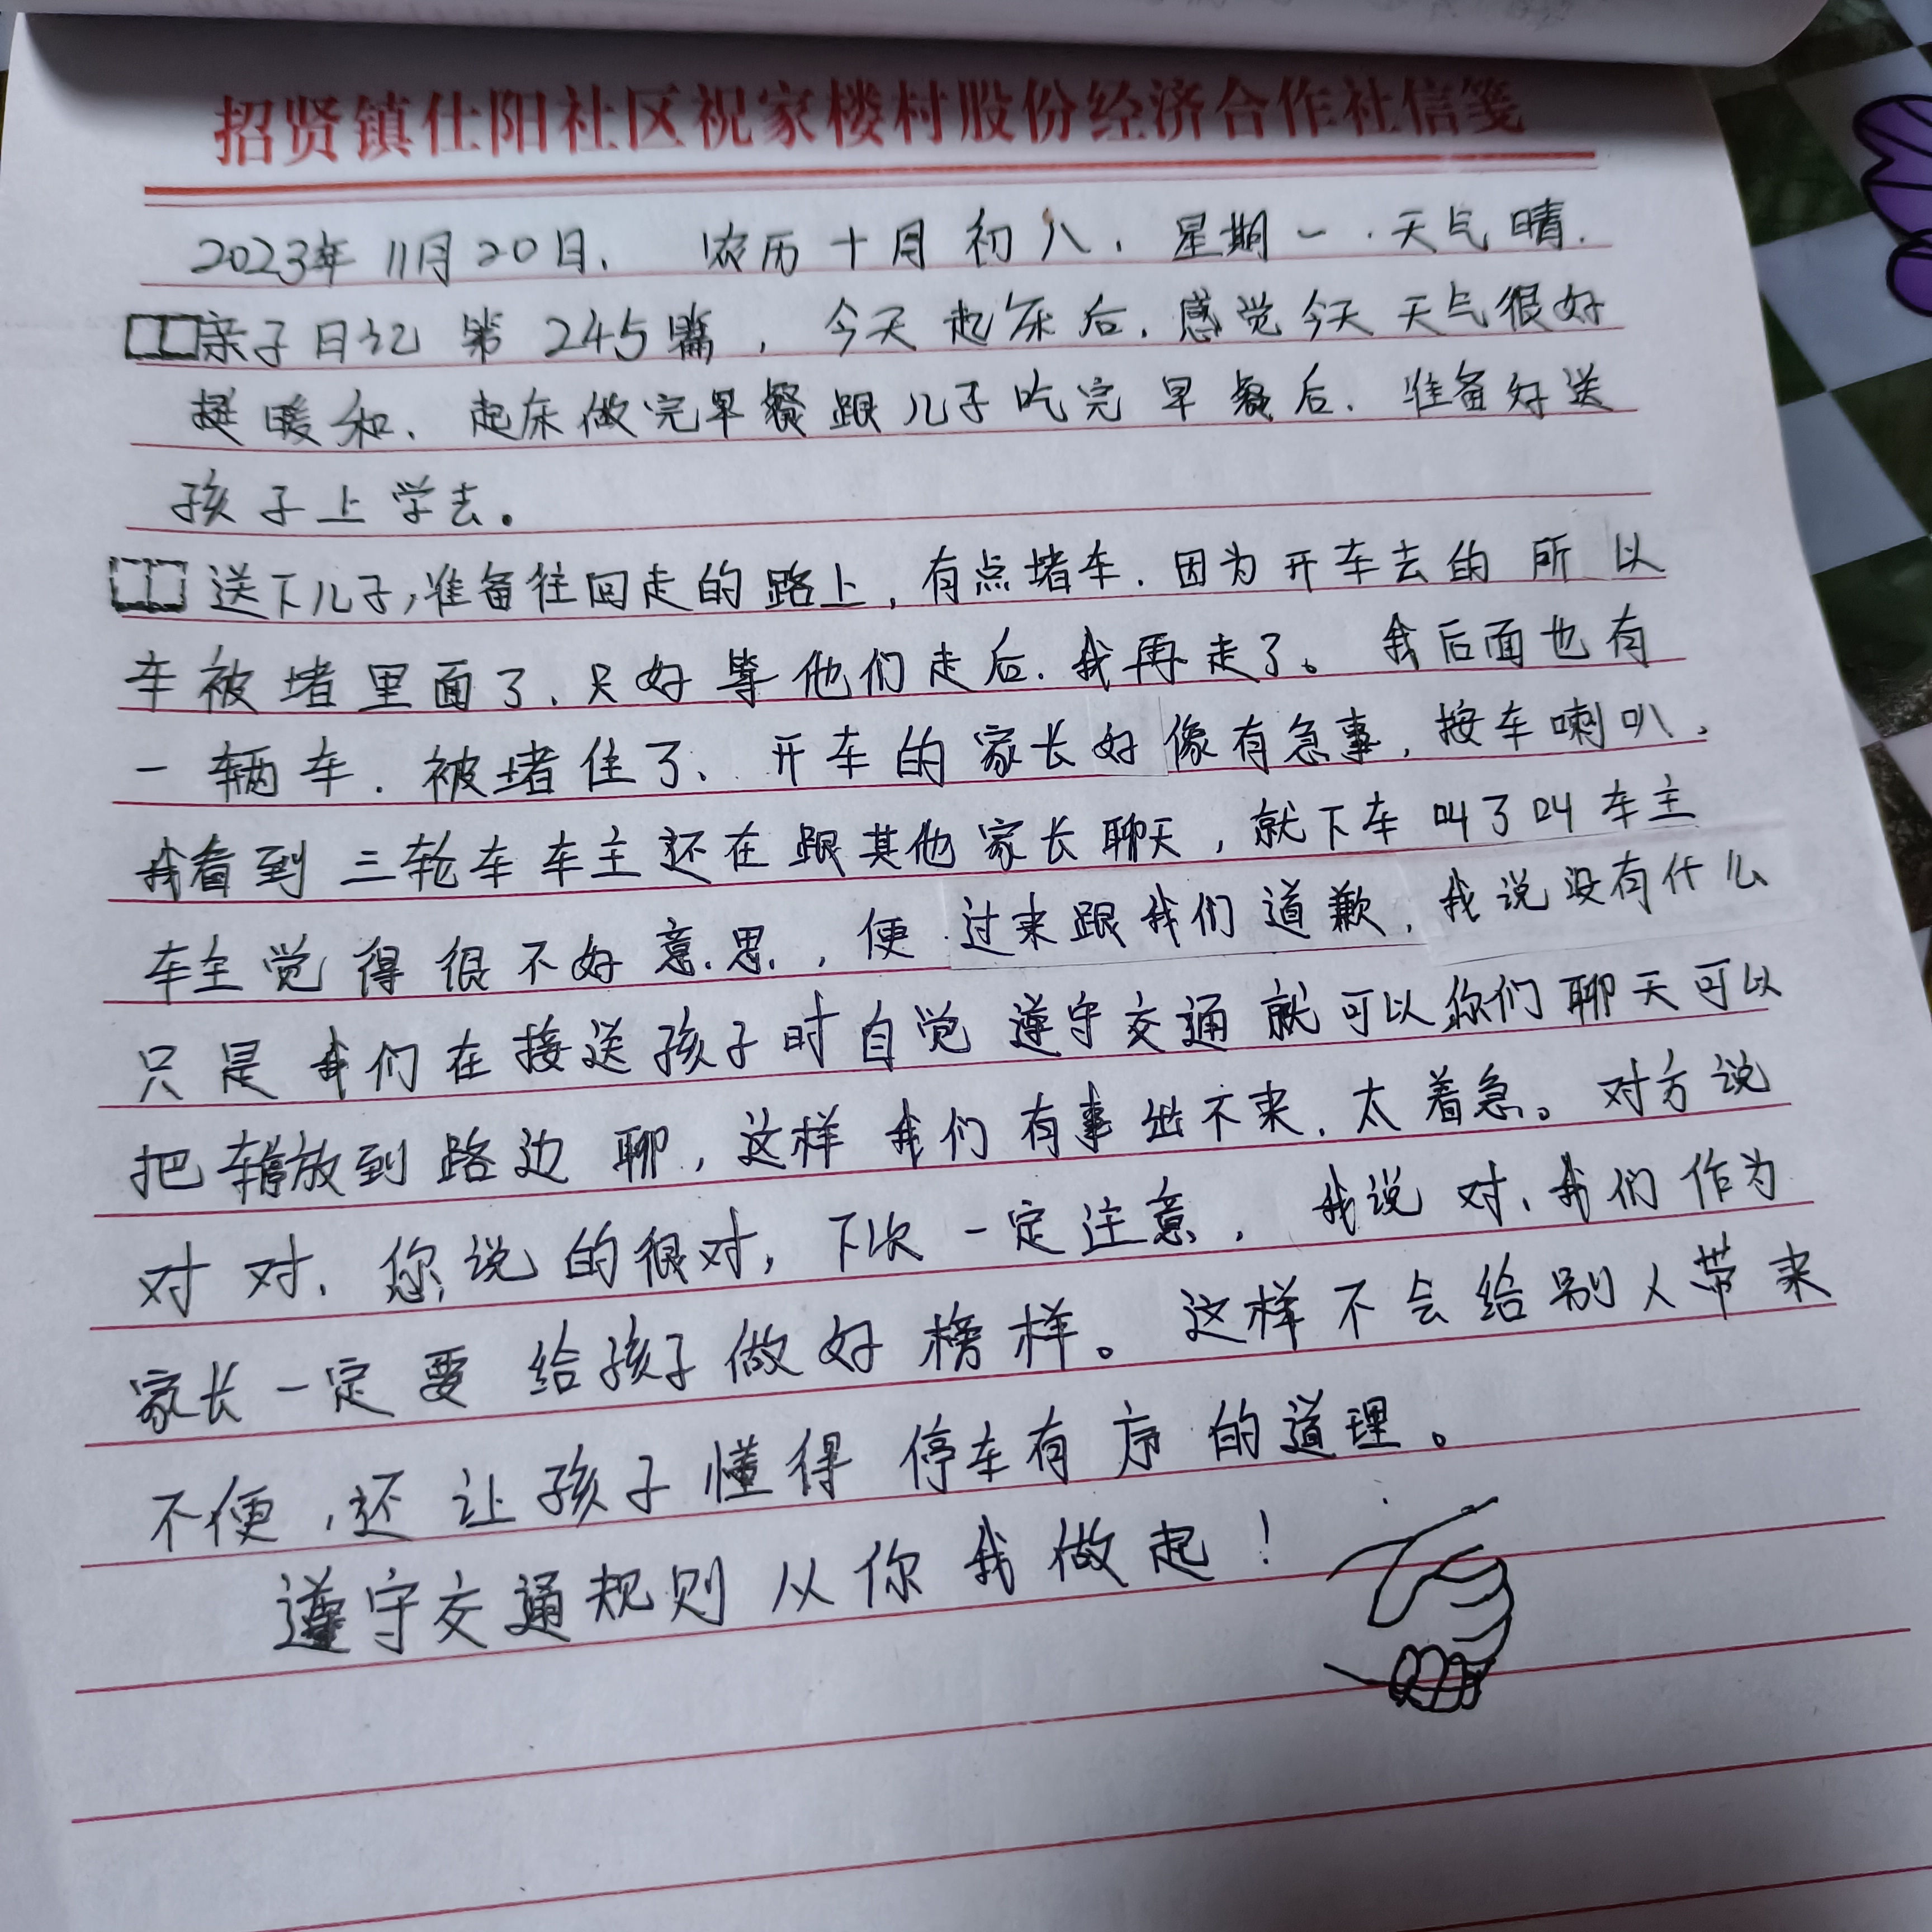 招贤镇仕阳社区祝家楼村股份经济合作社信笺
2023年11月20日、 农历十月初八、星期一.天气晴.
亲子日记第245篇，今天起床后.感觉今天天气很好
挺暖和、起床做完早餐跟儿子吃完早餐后.准备好送
孩子上学去。
送下儿子,准备往回走的路上,有点堵车.因为开车去的所以
车被堵里面了、只好等他们走后.我再走了。我后面也有
一辆车.被堵住了、开车的家长好像有急事,按车喇叭、
我看到三轮车车主还在跟其他家长聊天,就下车叫了叫车主
车主觉得很不好意思,便过来跟我们道歉,我说没有什么
只是我们在接送孩子时自觉遵守交通就可以你们聊天可以
把车放到路边聊,这样我们有事出不来.太着急。对方说
对对.您说的很对,下次一定注意,我说对、我们作为
家长一定要给孩子做好榜样。这样不会给别人带来
不便,还让孩子懂得停车有序的道理。
遵守交通规则从你我做起!